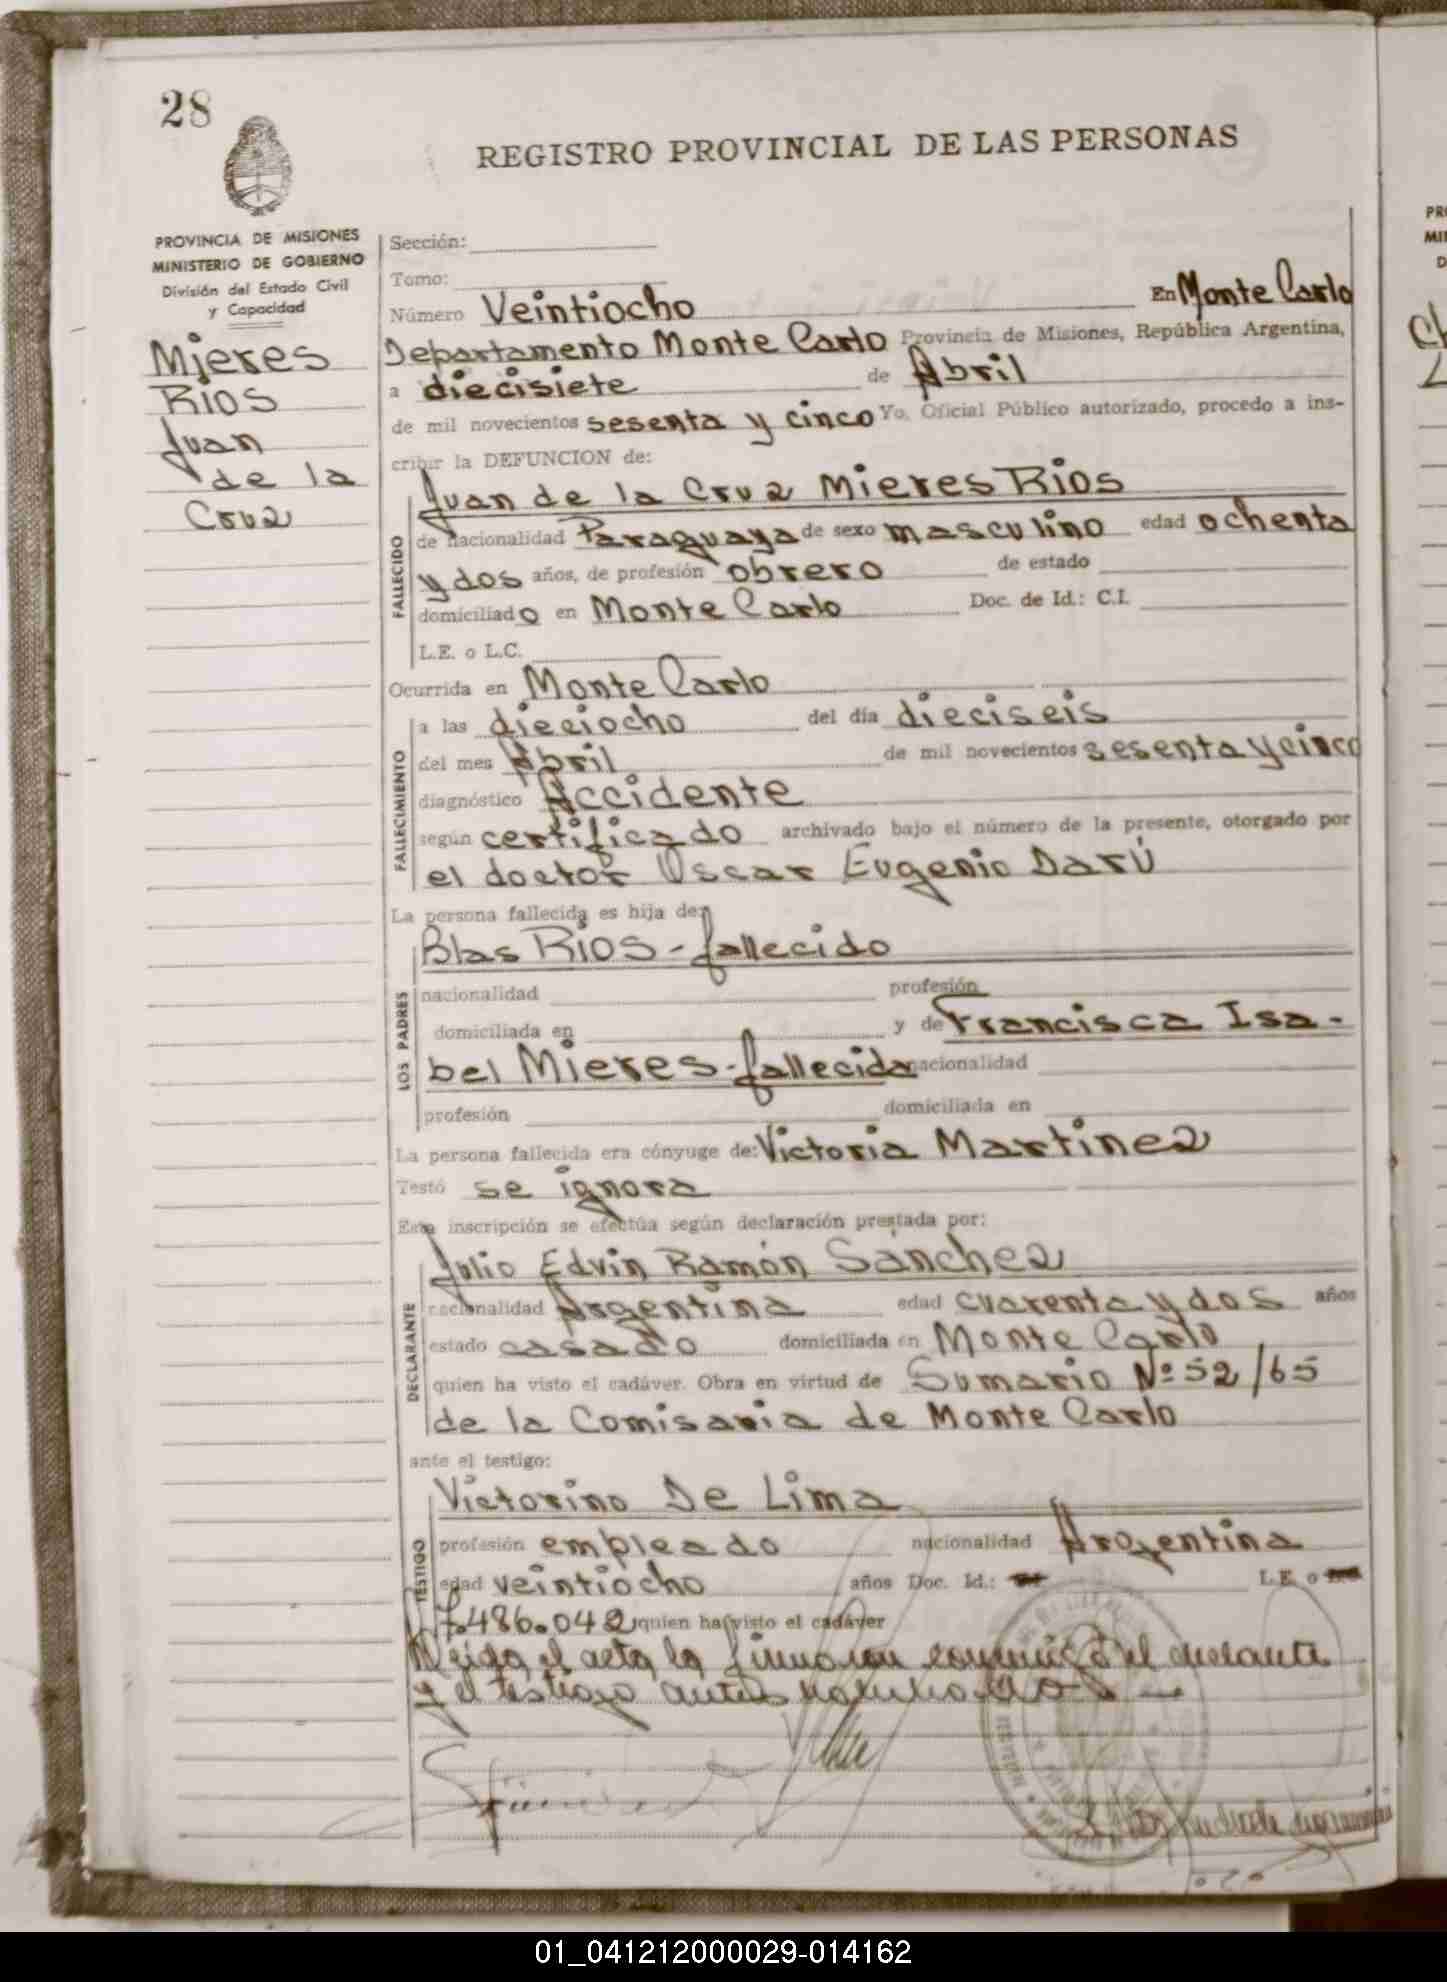 28
REGISTRO PROVINCIAL DE LAS PERSONAS
PROVINCIA DE MISIONES
MINISTERIO DE GOBIERNO
División del Estado Civil
y Capacidad
Mieres
Rios
Juan
de la
Cruz
Sección:
Tomo:
Número Veintiocho En Monte Carlo
Departamento Monte Carlo Provincia de Misiones, República Argentina,
a diecisiete de Abril
de mil novecientos sesenta y cinco Yo, Oficial Público autorizado, procedo a ins-
cribir la DEFUNCION de:
FALLECIDO
Juan de la Cruz Mieres Rios
de nacionalidad Paraguaya de sexo masculino edad ochenta
y dos años, de profesión obrero de estado
domiciliado en Monte Carlo Doc. de Id.: C.I.
L.E. o L.C.
Ocurrida en Monte Carlo
FALLECIMIENTO
a las dieciocho del día dieciseis
del mes Abril de mil novecientos sesenta y cinco
diagnóstico Accidente
según certificado archivado bajo el número de la presente, otorgado por
el doctor Oscar Eugenio Darú
La persona fallecida es hija de:
LOS PADRES
Blas Rios - fallecido
nacionalidad profesión
domiciliada en y de Francisca Isa-
bel Mieres - fallecida nacionalidad
profesión domiciliada en
La persona fallecida era cónyuge de: Victoria Martinez
Testó se ignora
Esta inscripción se efectúa según declaración prestada por:
DECLARANTE
Julio Edvin Ramón Sánchez
nacionalidad Argentina edad cuarenta y dos años
estado casado domiciliada en Monte Carlo
quien ha visto el cadáver. Obra en virtud de Sumario Nº 52/65
de la Comisaria de Monte Carlo
ante el testigo:
TESTIGO
Victorino De Lima
profesión empleado nacionalidad Argentina
edad veintiocho años Doc. Id.: L.E. o
7.486.042 quien ha visto el cadáver
Leida el acta la firman conmigo el declarante
y el testigo antes
01_041212000029-014162